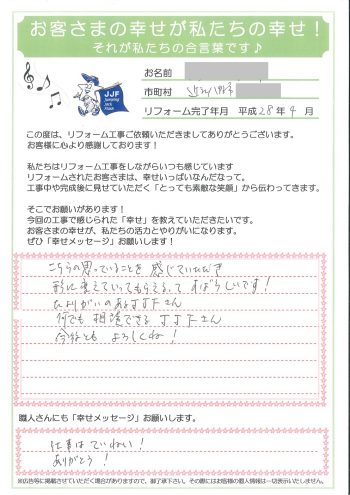 お客さまの幸せが私たちの幸せ！
それが私たちの合言葉です♪
JJF
お名前
市町村
リフォーム完了年月 平成28年9月
この度は、リフォーム工事ご依頼いただきましてありがとうございます。
お客様に心より感謝しております！
私たちはリフォーム工事をしながらいつも感じています
リフォームされたお客さまは、幸せいっぱいなんだなって。
工事中や完成後に見せていただく「とっても素敵な笑顔」から伝わってきます。
そこでお願いがあります！
今回の工事で感じられた「幸せ」を教えていただきたいです。
お客さまの幸せが、私たちの活力とやりがいになります。
ぜひ「幸せメッセージ」お願いします！
こちらの思っていることを感じていただき
形に変えていってもらえるってすばらしいです！
たよりがいのあるJJFさん
何でも相談できるJJFさん
今後ともよろしくね！
職人さんにも「幸せメッセージ」お願いします。
仕事はていねい！
ありがとう！
※広告等に掲載させていただく場合がありますので、御了承下さい。その際にはお客様の個人情報は一切表示いたしません。